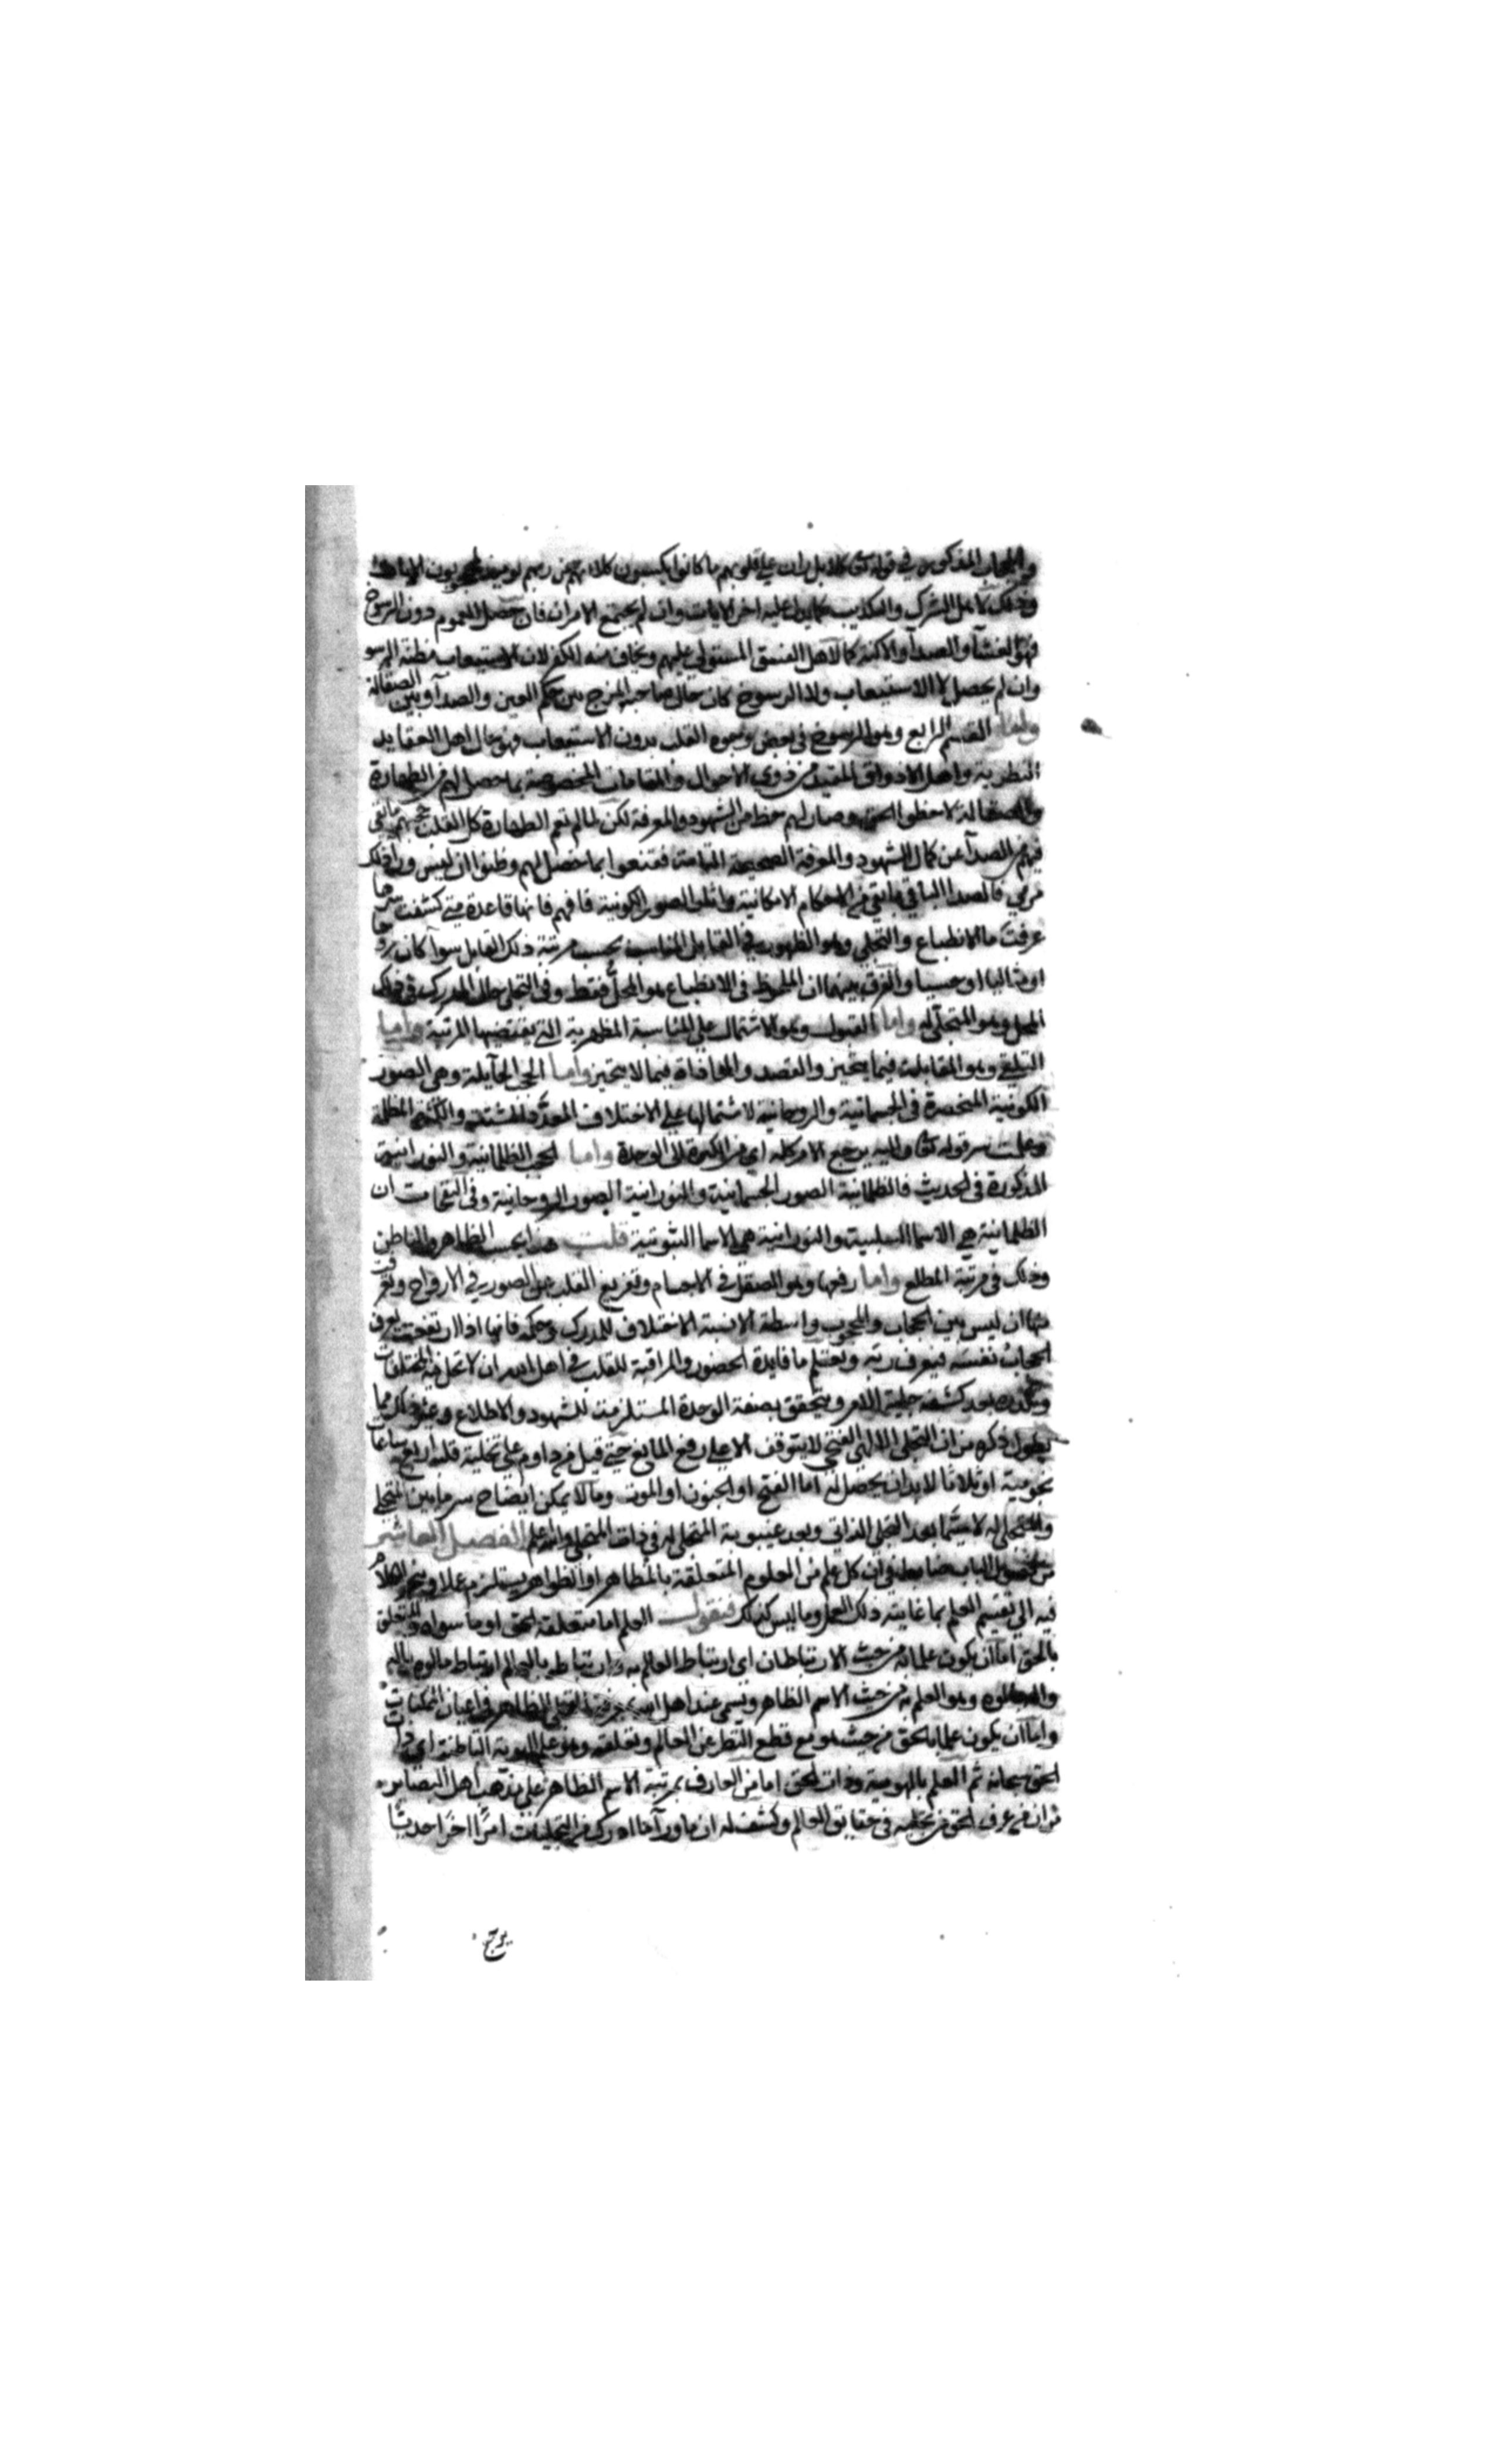 والحجاب المذكورين في قوله تعالى كلا بل ران على قلوبهم ما كانوا يكسبون كلا انهم عن ربهم يومئذ لمحجوبون
وذلك لاهل الشرك والتكذيب كما يدل عليه اخر الايات وان لم يجتمع الامران فان حصل العموم دون الرسوخ
فهو الغشا والصدا والاكنة كما لاهل الفسق المستولي عليهم ويخاف منه الكفر لان الاستيعاب مظنة الرسو
وان لم يحصل لا الاستيعاب ولا الرسوخ كان حال صاحبه المزج بين حكم الغين والصدا وبين الصقالة
واما القسم الرابع وهو الرسوخ في بعض وجوه القلب بدون الاستيعاب فهو حال اهل العقايد
النظرية واهل الاذواق المقيدة من ذوي الاحوال والمقامات المخصوصة بما حصل لهم من الطهارة
والصقالة لاحظوا الحق وصار لهم حظ من الشهود والمعرفة لكن لما لم تعم الطهارة كل القلب حجبهم ما بقي
فيهم من الصدا عن كمال الشهود والمعرفة الصحيحة التامة فقنعوا بما حصل لهم وظنوا ان ليس وراء ذلك
مرمي فالصدا الباقي ما بقي من الاحكام الامكانية واثار الصور الكونية فافهم فانها قاعدة متى كشفت سرها
عرفت ما الانطباع والتجلي وهو الظهور في القابل المناسب بحسب مرتبة ذلك القابل سوا كان روحا
او مثاليا او حسيا والفرق بينهما ان الملحوظ في الانطباع هو المحل فقط وفي التجلي حال المدرك في ذلك
المحل وهو المتجلى له واما القبول وهو الاشتمال على المناسبة المظهرية التي يقتضيها المرتبة واما
التلقي وهو المقابلة فيما يتحيز والقصد والمحاذاة فيما لا يتحيز واما الحجب الحايلة وهي الصور
الكونية المنحصرة في الجسمانية والروحانية لاشتمالها على الاختلاف المعدد المشتت والكثرة المظلمة
وعلمت سر قوله تعالى واليه يرجع الامر كله اي من الكثرة الى الوحدة واما الحجب الظلمانية والنورانية
المذكورة في الحديث فالظلمانية الصور الجسمانية والنورانية الصور الروحانية وفي النفحات ان
الظلمانية هي الاسما السلبية والنورانية هي الاسما الثبوتية قلت هذا بحسب الظاهر والباطن
وذلك في مرتبة المطلع واما رفعها وهو الصقل في الاجسام وتفريغ القلب عن الصور في الارواح وتعرف
منها ان ليس بين الحجاب والمحجوب واسطة الا نسبة الاختلاف للمدرك وحكمه فانها اذا ارتفعت يعرف
الحجاب نفسه فيعرف ربه ويعلم ما فايدة الحضور والمراقبة للقلب في اهل الله ان لا تحل فيه المختلفات
بعد كشفه جلية الامر ويتحقق بصفة الوحدة المستلزمة للشهود والاطلاع وغير ذلك مما
يطول ذكره من ان التجلي الالهي الفتحي لا يتوقف الا على رفع المانع حتى قيل من داوم على تخلية قلبه اربع ساعات
نجومية او ثلاثا لا بد ان يحصل له اما الفتح او الجنون او الموت ومما لا يمكن ايضاح سره ما بين المتجلي
والمتجلى له لا سيما بعد التجلي الذاتي وبعد غيبوبة المتجلى له في ذات المتجلي والله اعلم الفصل العاشر
من فصول الباب ضابط في ان كل علم من العلوم المتعلقة بالمظاهر او الظواهر يستلزم عملا وينجر الكلام
فيه الى تقسيم العلم بما غايته ذلك العمل وما ليس كذلك فنقول العلم اما متعلقه الحق او ما سواه والمتعلق
بالحق اما ان يكون علما به من حيث الارتباطان اي ارتباط العالم به وارتباطه بالعالم ارتباط مالوه باله
وهو العلم به من حيث الاسم الظاهر ويسمى عند اهل الله بمعرفة التجلي الظاهر في اعيان الممكنات
واما ان يكون علما بالحق من حيث هو مع قطع النظر عن العالم وتعلقه وهو علم الهوية الباطنة اي ذات
الحق سبحانه ثم العلم بالهوية وذات الحق اما من العارف بمرتبة الاسم الظاهر على مذهب اهل البصاير
فان من عرف الحق من تجليه في حقايق العالم وكشف له ان ما ورا ما ادرك من التجليات امرا اخر احديتا